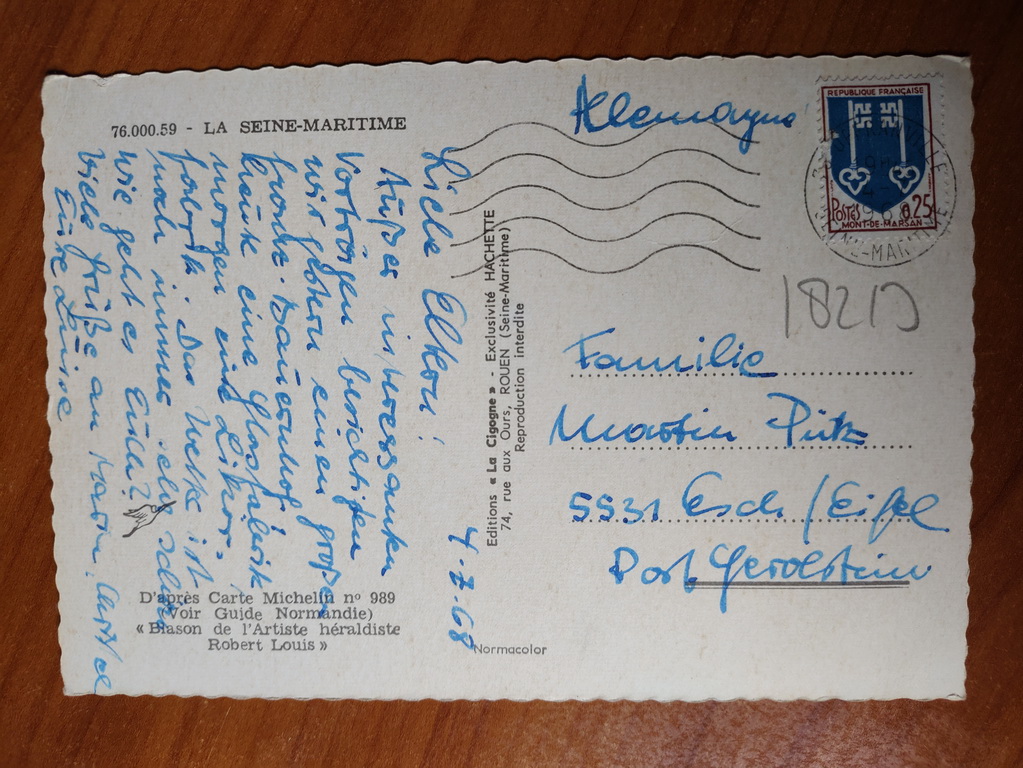 76.000.59 - LA SEINE-MARITIME
4.7.68
Liebe Eltern!
Außer interessanten
Vorträgen besichtigten
wir gestern einen großen
franz. Bauernhof,
heute eine Glasfabrik
morgen eine Likör-
fabrik. Das Wetter ist
noch immer sehr schön
wie geht es Euch?
Viele Grüße an Maria,
Eure Luise
D'après Carte Michelin nº 989
(Voir Guide Normandie)
« Blason de l'Artiste héraldiste
Robert Louis »
Editions « La Cigogne » - Exclusivité HACHETTE
74, rue aux Ours, ROUEN (Seine-Maritime)
Reproduction interdite
Normacolor
Allemagne
REPUBLIQUE FRANÇAISE
POSTES 0,25
MONT-DE-MARSAN
SEINE-MARITIME
1821D
Familie
Martin Pütz
5531 Esch/Eifel
Post Gerolstein